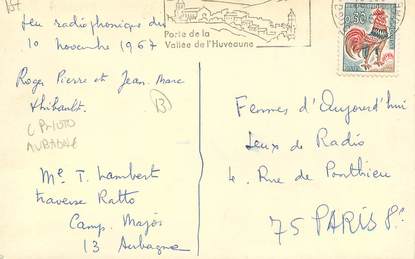 Jeu radiophonique du
10 novembre 1967
Roger Pierre et Jean-Marc
Thibault.
13
AUBAGNE
Me T. Lambert
traverse Ratto
Camp. Major
13 Aubagne
Porte de la
Vallée de l'Huveaune
0,50
Femmes d'Aujourd'hui
Jeux de Radio
4. Rue de Ponthieu
75 PARIS 8e